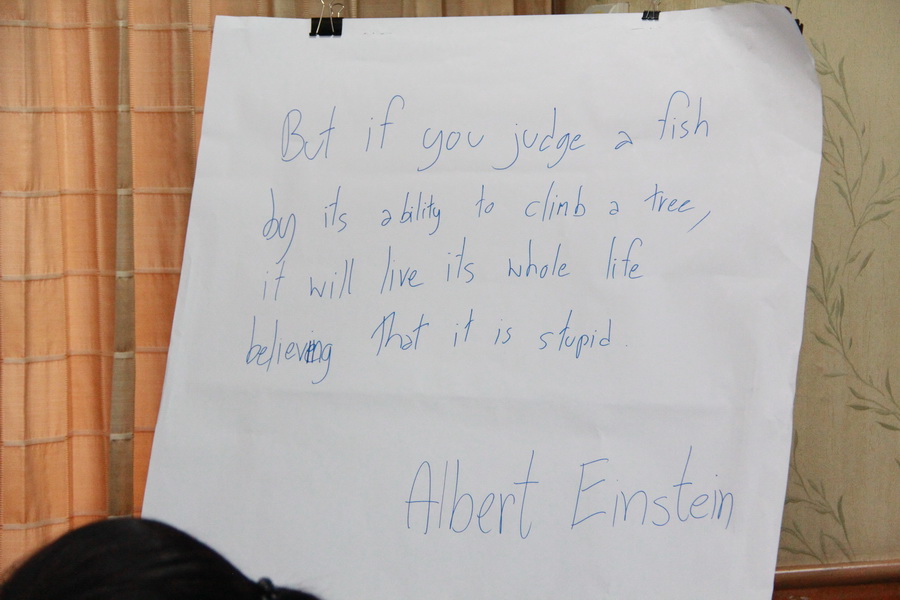 But if you judge a fish
by its ability to climb a tree,
it will live its whole life
believing that it is stupid.
Albert Einstein